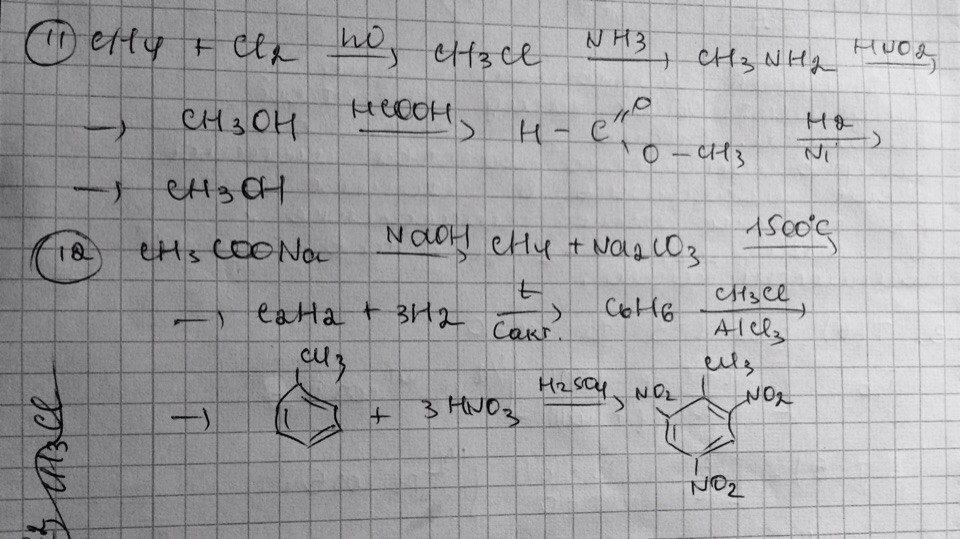 11 CH4 + Cl2 hν→ CH3Cl NH3→ CH3NH2 HNO2→
→ CH3OH HCOOH→ H-C(=O)-O-CH3 H2/Ni→
→ CH3OH
12 CH3COONa NaOH→ CH4 + Na2CO3 1500°C→
→ C2H2 + 3H2 t/Cакт.→ C6H6 CH3Cl/AlCl3→
CH3 CH3
→ + 3HNO3 H2SO4→ NO2 NO2
NO2
CH3Cl